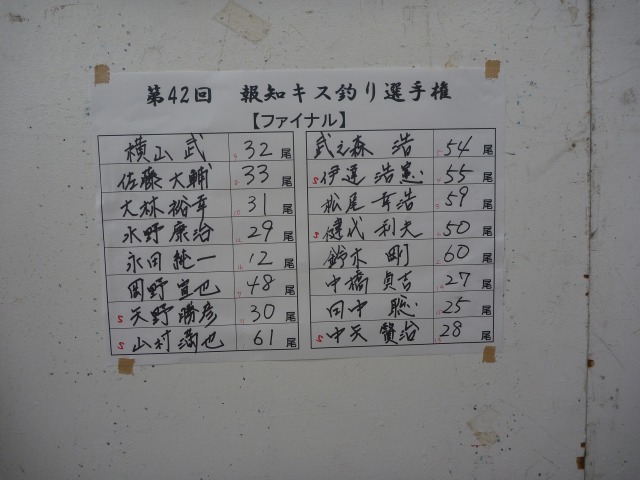 第42回 報知キス釣り選手権
【ファイナル】
横山 武 32 尾
佐藤 大輔 33 尾
大林 裕幸 31 尾
水野 康治 29 尾
永田 純一 12 尾
岡野 宣也 48 尾
天野 勝彦 30 尾
山村 満也 61 尾
森 浩 54 尾
浩恵 55 尾
松尾 幸浩 59 尾
利夫 50 尾
鈴木 剛 60 尾
中橋 貞吉 27 尾
田中 聡 25 尾
賢治 28 尾